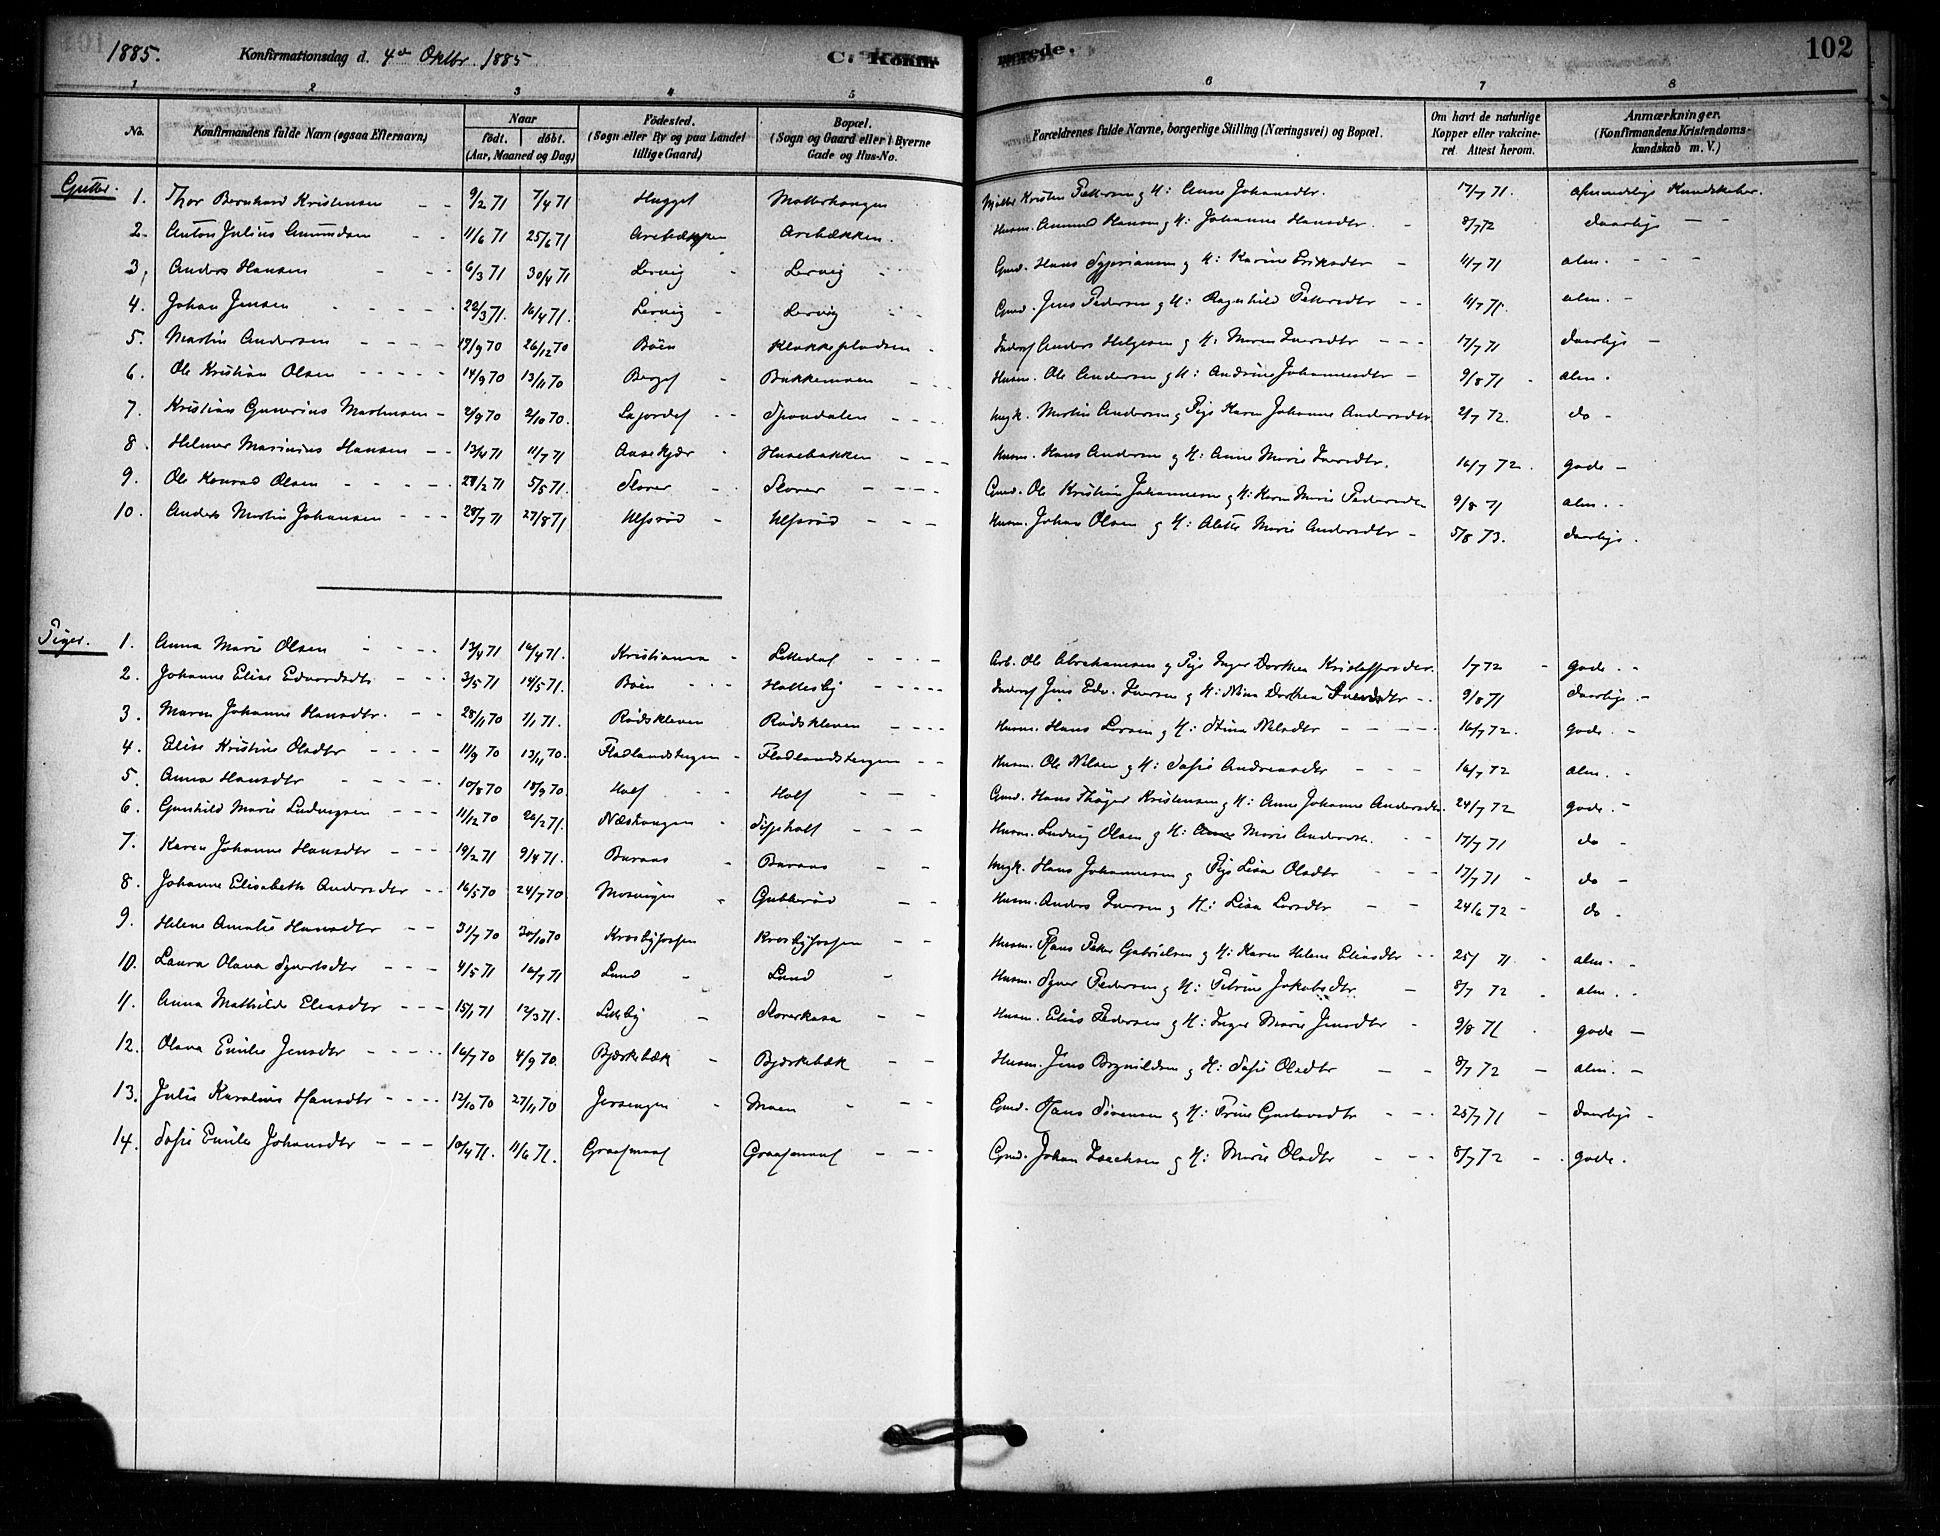 1885. Konfirmationsdag d. 4de Oktbr. 1885 C. Konfirmerede. 102
1 2 3 4 5 6 7 8
No. Konfirmandens fulde Navn (ogsaa Efternavn) Naar født. døbt. (Aar, Maaned og Dag) Födested. (Sogn eller By og paa Landet tillige Gaard) Bopæl. (Sogn og Gaard eller i Byerne Gade og Hus-No. Forældrenes fulde Navne, borgerlige Stilling (Næringsvei) og Bopæl. Om havt de naturlige Kopper eller vakcineret Attest herom. Anmærkninger. (Konfirmandens Kristendomskundskab m. V.)
Gutter.
1. Thor Bernhard Kristensen - - 9/2 71 7/4 71 Kristen Pettersen og H: Anne Johansdtr. 17/7 71. Kundskaber.
2. Anton Julius Amundsen - - 11/6 71 25/6 71 Arebækken Arebækken. Husm. Amund Hansen og H: Johanne Hansdtr. - 8/7 72 daarlige - -
3. Anders Hansen - - - 6/3 71 30/4 71 Lervig - Lervig - Gmd. Hans og H: Karine Eriksdtr - 11/7 71 alm. - - -
4. Johan Jensen - - - - 22/3 71. 16/4 71. Lervig - Lervig - - Gmd. Jens Pedersen og H: Ragnhild Pettersdtr - - 11/7 71. alm. -
5. Martin Andersen - - - - 19/9 70 26/12 70 Böen Klokkepladsen - Anders Helgesen og H: Maren Iversdtr - - - 17/7 71 daarlige -
6. Ole Kristian Olsen - - - - - 14/9 70 13/11 70 Berget - Bakkemoen - - - Husm. Ole Andersen og H: Andrine Johannesdtr - 9/8 71 - alm.
7. Kristian Gunerius Martinsen - 2/9 70 2/10 70. - - Spondalen - - - Ungk. Martin Andersen og Pige Karen Johanne Andersdtr 2/7 72. do -
8. Helmer Marinius Hansen - - 13/4 71 11/7 71 Aasekjær - Husebakken - - - Husm. Hans Andersen og H: Anne Marie Iversdtr. 16/7 72. gode -
9. Ole Konrad Olsen - - - - 28/2 71 5/5 71. Slorer - - Slorer - - - - Gmd. Ole Kristian Johannesen og H: Karen Marie Pedersdtr 9/8 71 alm. -
10. Anders Martin Johansen - - - 28/7 71 27/8 71 Ulfsröd - Ulfsröd - - - Husm. Johan Olsen og H: Alette Marie Andersdtr - 5/8 73. daarlige.
Piger.
1. Anna Marie Olsen - - - - 13/4 71 16/4 71. Kristiania - - - - - Arb. Ole Abrahamsen og Pige Inger Dorthea Kristoffersdtr. 1/7 72 - gode. -
2. Johanne Elise Edvardsdtr - - - 3/5 71 14/5 71. Böen - - - Hollesby - - - - - Jens Edv. Iversen og H: Nina Dorthea Svendsdtr - 9/8 71 daarlige -
3. Maren Johanne Hansdtr. - - 28/11 70 1/1 71. Rödskleven Rödskleven - - - - Husm. Hans Larsen og H: Stina Nilsdtr - - - - 16/7 72. gode. -
4. Elise Kristine Olsdtr - - - - 11/9 70 13/11 70. Fladlandstangen - Fladlandstangen - - Husm. Ole Nilsen og H: Sofie Andreasdtr - - - 16/7 72 alm. -
5. Anna Hansdtr - - - - 10/8 70 18/9 70 - - - - - Gmd. Hans Thöger Kristensen og H: Anne Johanne Andersdtr. 24/7 72 gode. -
6. Gunhild Marie Ludvigsen - - - 11/12 70 26/2 71. Næstangen - - - - Husm. Ludvig Olsen og H: Anne Marie Andersdtr. - - 17/7 71 do -
7. Karen Johanne Hansdtr - - - 19/2 71 9/4 71. Buraas - Buraas - - Ungk. Hans Johannesen og Pige Lisa Olsdtr - - - 17/7 71 - do -
8. Johanne Elisabeth Andersdtr - - 16/5 70 24/7 70 Moseengen - Gubberöd - - Husm. Anders Iversen og H: Lisa Larsdtr - - 24/6 72 - do -
9. Helene Amalie Hansdtr - - 31/7 70 30/10 70 - - Husm. Hans Peter Gabrielsen og H: Karen Helene Eliasdtr - - 25/ 71 - alm. -
10. Laura Olava Syversdtr - - - 4/5 71 16/7 71 Lund - Lund - Husm. Syver Pedersen og H: Petrine Jakobsdtr - 8/7 72 - alm. -
11. Anna Mathilde Eliasdtr - - - 15/1 71 12/3 71. Lilleby - Slorerkasa - - Husm. Elias Pedersen og H: Inger Marie Jensdtr - 9/8 71 - gode -
12. Olava Emilie Jensdtr - - - - 16/7 70 4/9 70. Bjærkebæk - Bjærkebæk - - Husm. Jens Brynildsen og H: Sofie Olsdtr - - 8/7 72 - alm. -
13. Julie Karoline Hansdtr - - - - 12/10 70 27/11 70 Jersengen - Moen - - Gmd. Hans Sörensen og H: Trine Gulovsdtr - - - 25/7 71 - daarlige -
14. Sofie Emilie Johansdtr - - - 10/4 71. 11/6 71. - - - Gmd. Johan Isachsen og H: Marie Olsdtr - - - 8/7 72 - - gode.